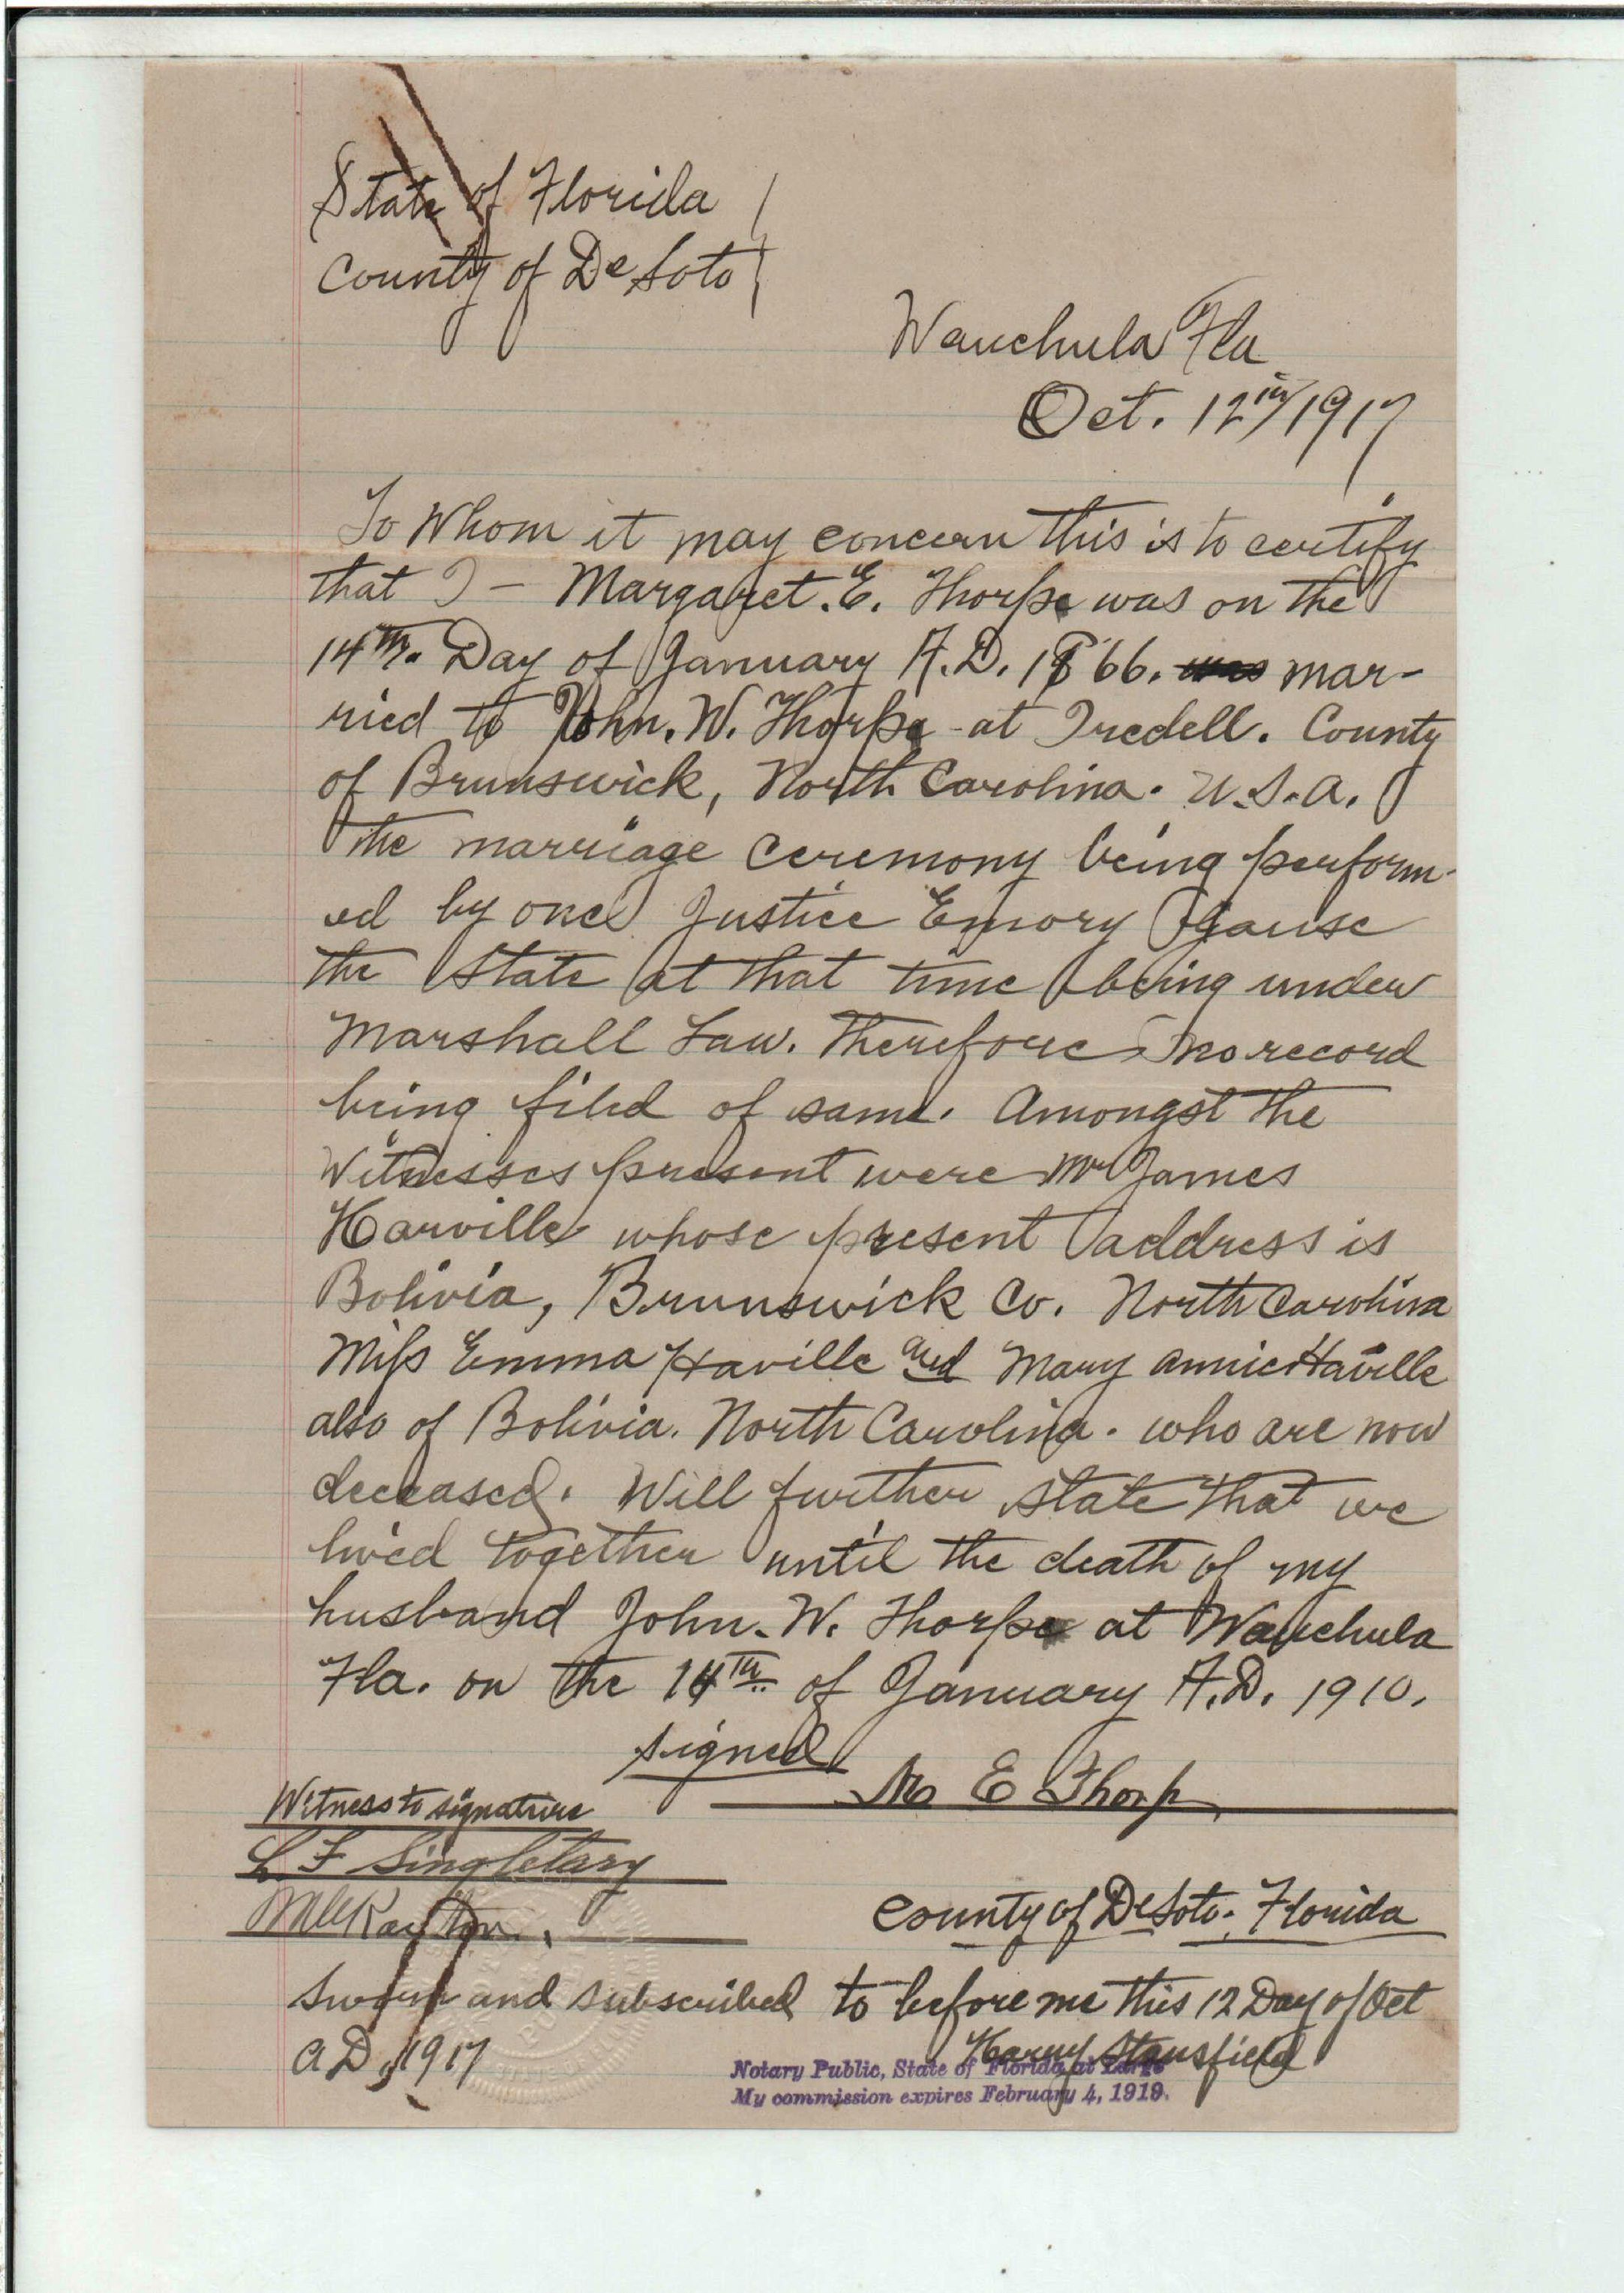 State of Florida
County of De Soto
Wauchula Fla
Oct. 12th/1917
To Whom it may concern this is to certify
that I - Margaret. E. Thorpe was on the
14th. Day of January A.D. 1866. was mar-
ried to John. W. Thorpe - at Iredell. County
of Brunswick, North Carolina. U.S.A.
the marriage ceremony being perform-
ed by one Justice Emory Gause
the State at that time being under
Marshall Law. Therefore no record
being filed of same. Amongst the
Witnesses present were Mr James
Harville whose present address is
Bolivia, Brunswick Co. North Carolina
Miss Emma Haville and Mary Annie Haville
also of Bolivia. North Carolina. who are now
deceased. Will further state that we
lived together until the death of my
husband John. W. Thorpe at Wauchula
Fla. on the 14th of January A.D. 1910.
signed
M E Thorp
Witness to signature
L F Singletary
County of De Soto. Florida
Sworn and subscribed to before me this 12 Day of Oct
A D, 1917
Harry Stansfield
Notary Public, State of Florida at Large
My commission expires February 4, 1919.